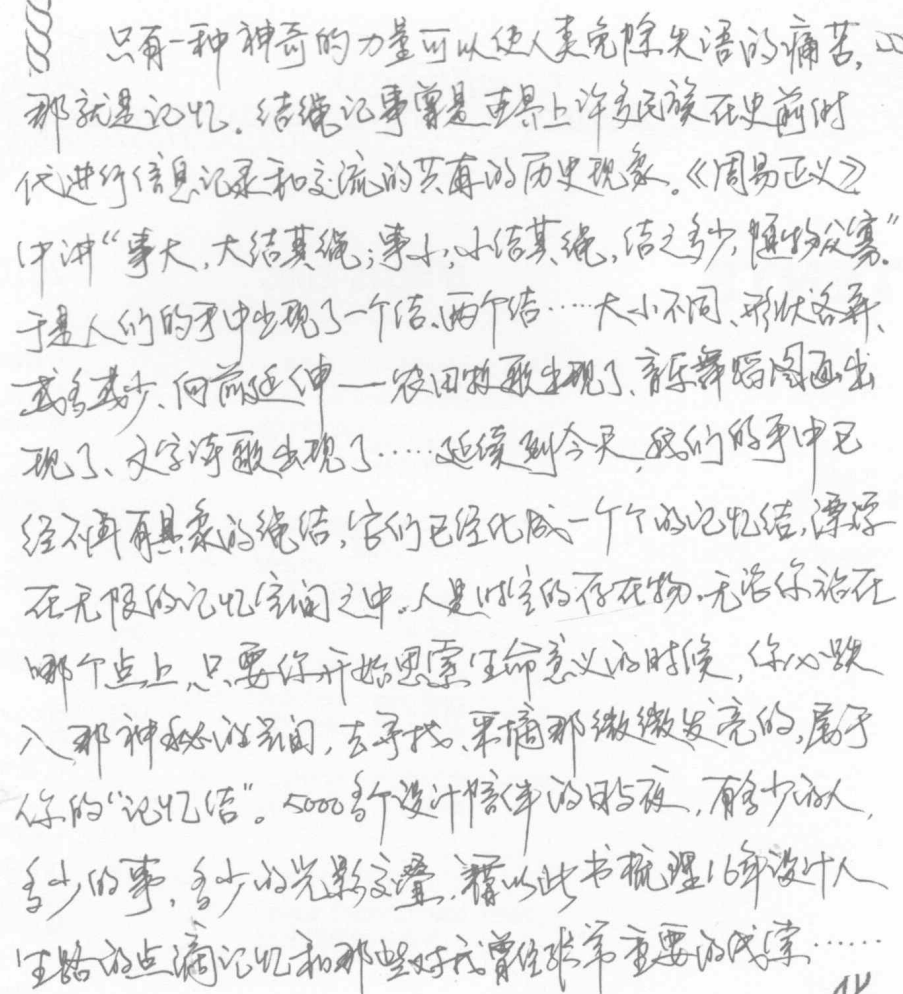 只有一种神奇的力量可以使人类免除失语的痛苦,
那就是记忆。结绳记事曾是世界上许多民族在史前时
代进行信息记录和交流的共有的历史现象。《周易正义》
中讲“事大,大结其绳;事小,小结其绳,结之多少,随物众寡”
于是人们的手中出现了一个结、两个结……大小不同、形状各异、
或多或少、向前延伸——农田牧歌出现了、音乐舞蹈图画出
现了、文字诗歌出现了……延续到今天,我们的手中已
经不再有具象的绳结,它们已经化成一个个的记忆结,漂浮
在无限的记忆空间之中。人是时空的存在物。无论你站在
哪个点上,只要你开始思索生命意义的时候,你必跌
入那神秘的空间,去寻找、采摘那微微发亮的,属于
你的“记忆结”。5000多个设计陪伴的日与夜,有多少的人,
多少的事,多少的光影交叠,谨以此书梳理16年设计人
生路的点滴记忆和那些对我曾经非常重要的线索……